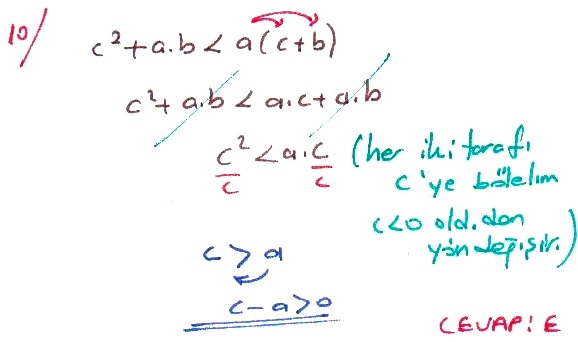 10/
c²+a.b < a(c+b)
c²+ a.b < a.c+a.b
c²/c < a.c/c (her iki tarafı
c'ye bölelim
c<0 old.dan
yön değişir.)
c > a
c-a>0
CEVAP: E